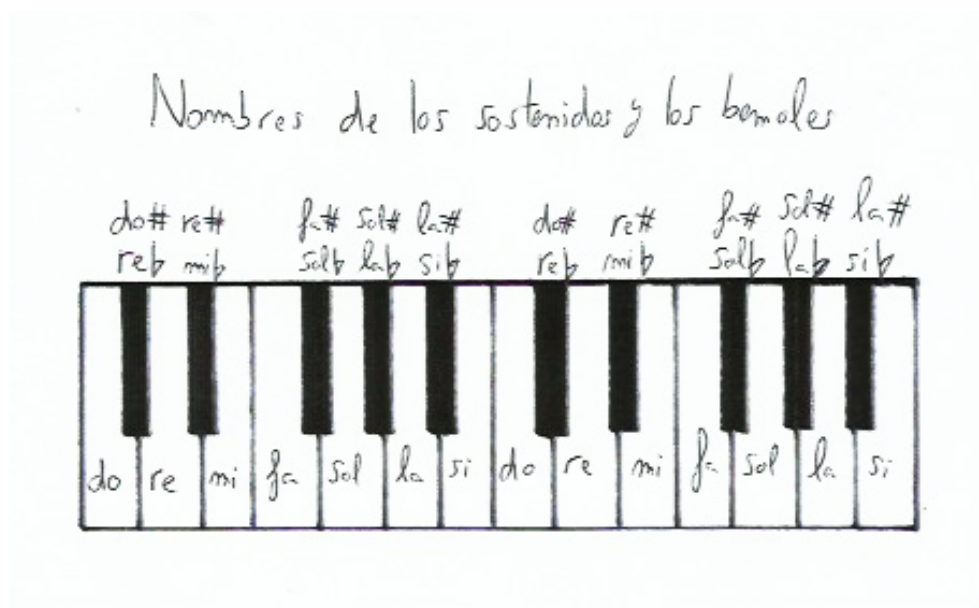 Nombres de los sostenidos y los bemoles
do# re# fa# sol# la# do# re# fa# sol# la#
re♭ mi♭ sol♭ la♭ si♭ re♭ mi♭ sol♭ la♭ si♭
do re mi fa sol la si do re mi fa sol la si